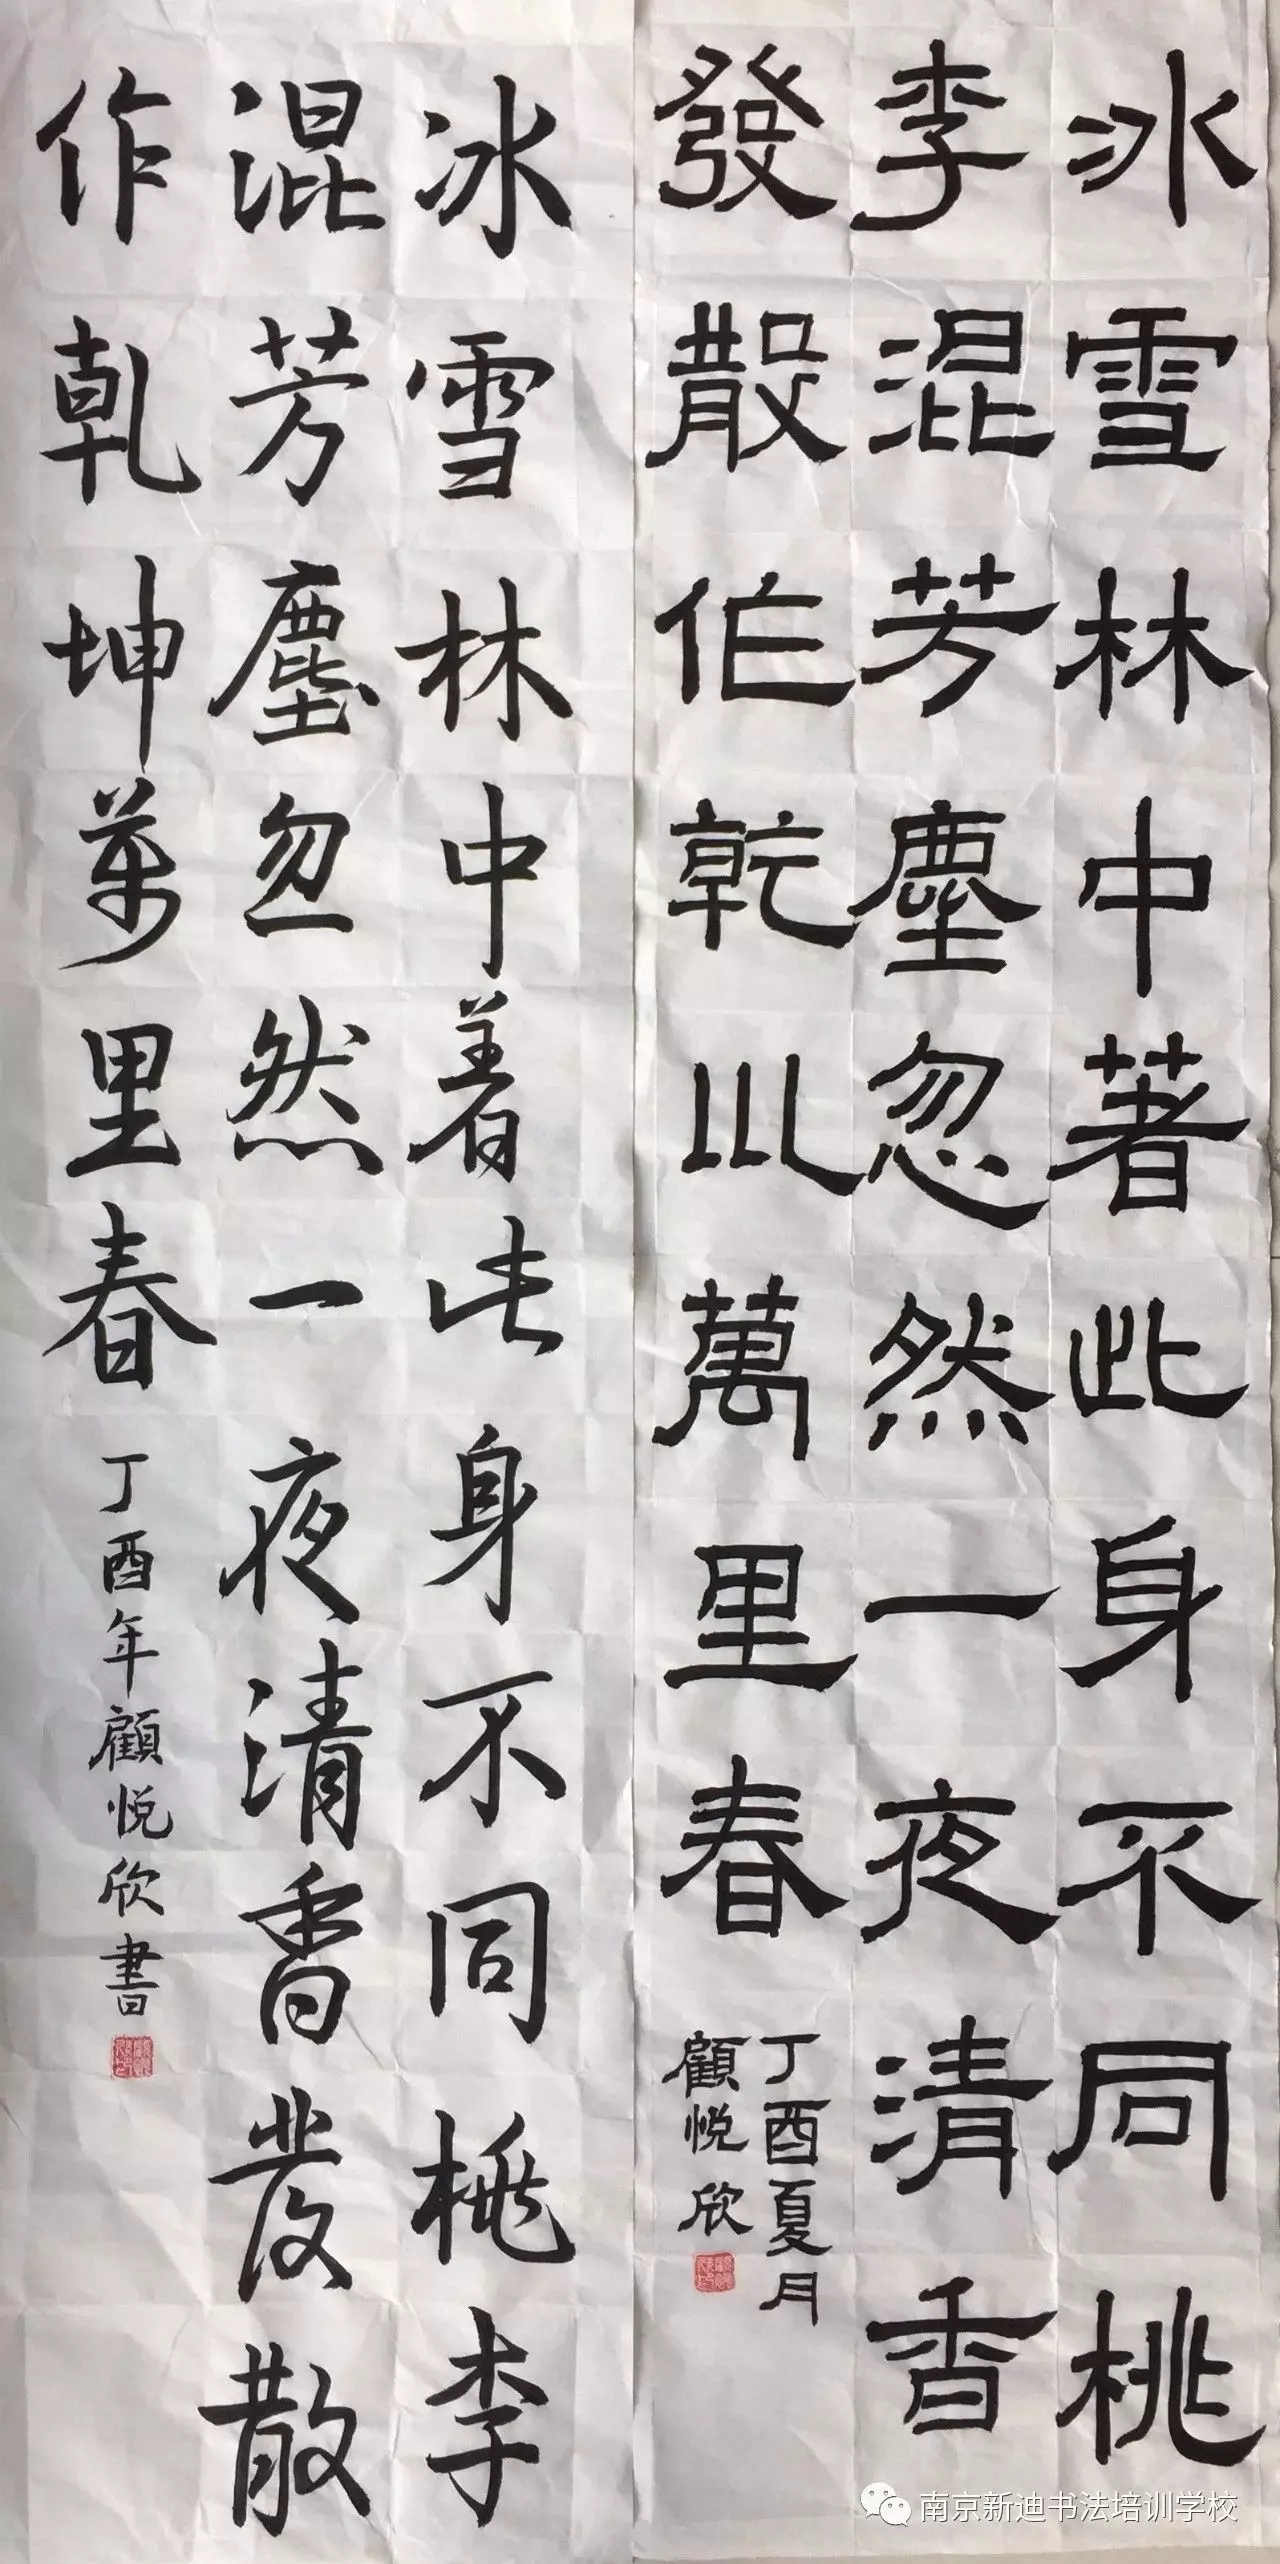 冰雪林中著此身不同桃
李混芳塵忽然一夜清香
發散作乾㘳萬里春
丁酉夏月
顧悦欣
冰雪林中着此身不同桃李
混芳塵忽然一夜清香发散
作乾坤萬里春
丁酉年顧悦欣書
南京新迪书法培训学校